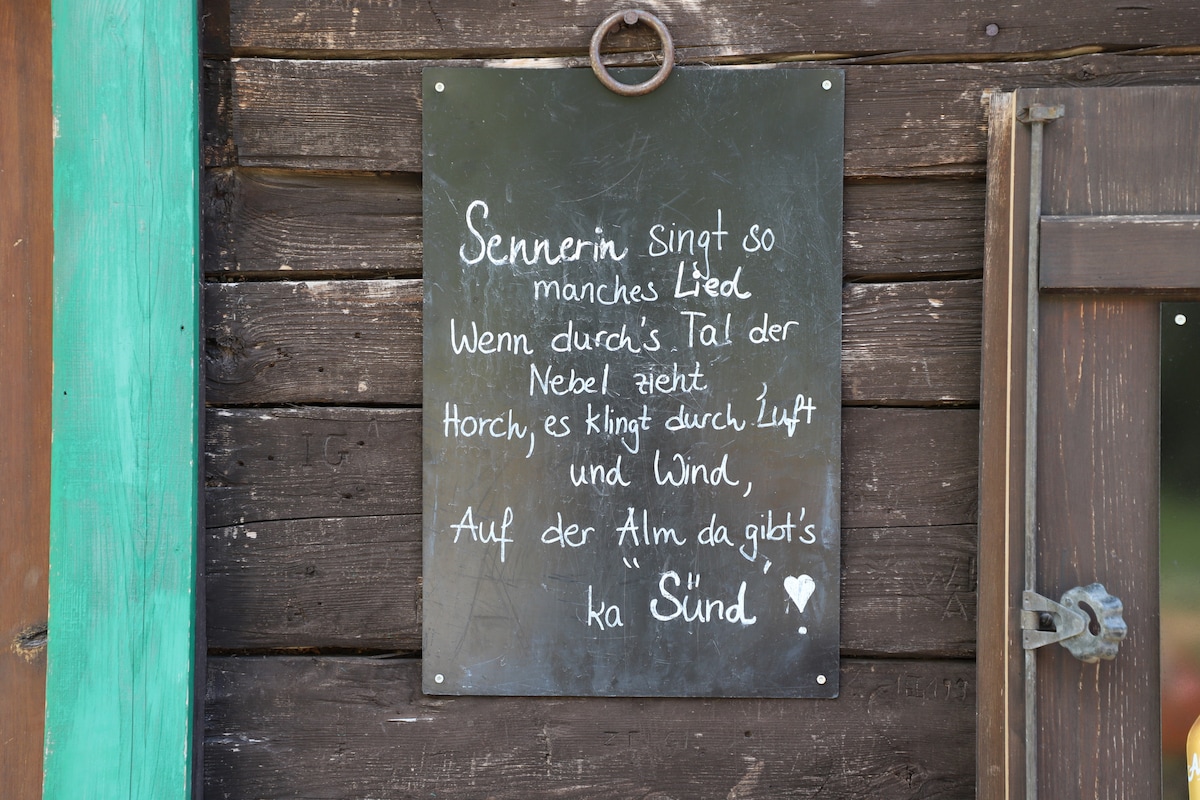 Sennerin singt so
manches Lied
Wenn durch's Tal der
Nebel zieht
Horch, es klingt durch Luft
und Wind,
Auf der Alm da gibt's
ka Sünd
IG